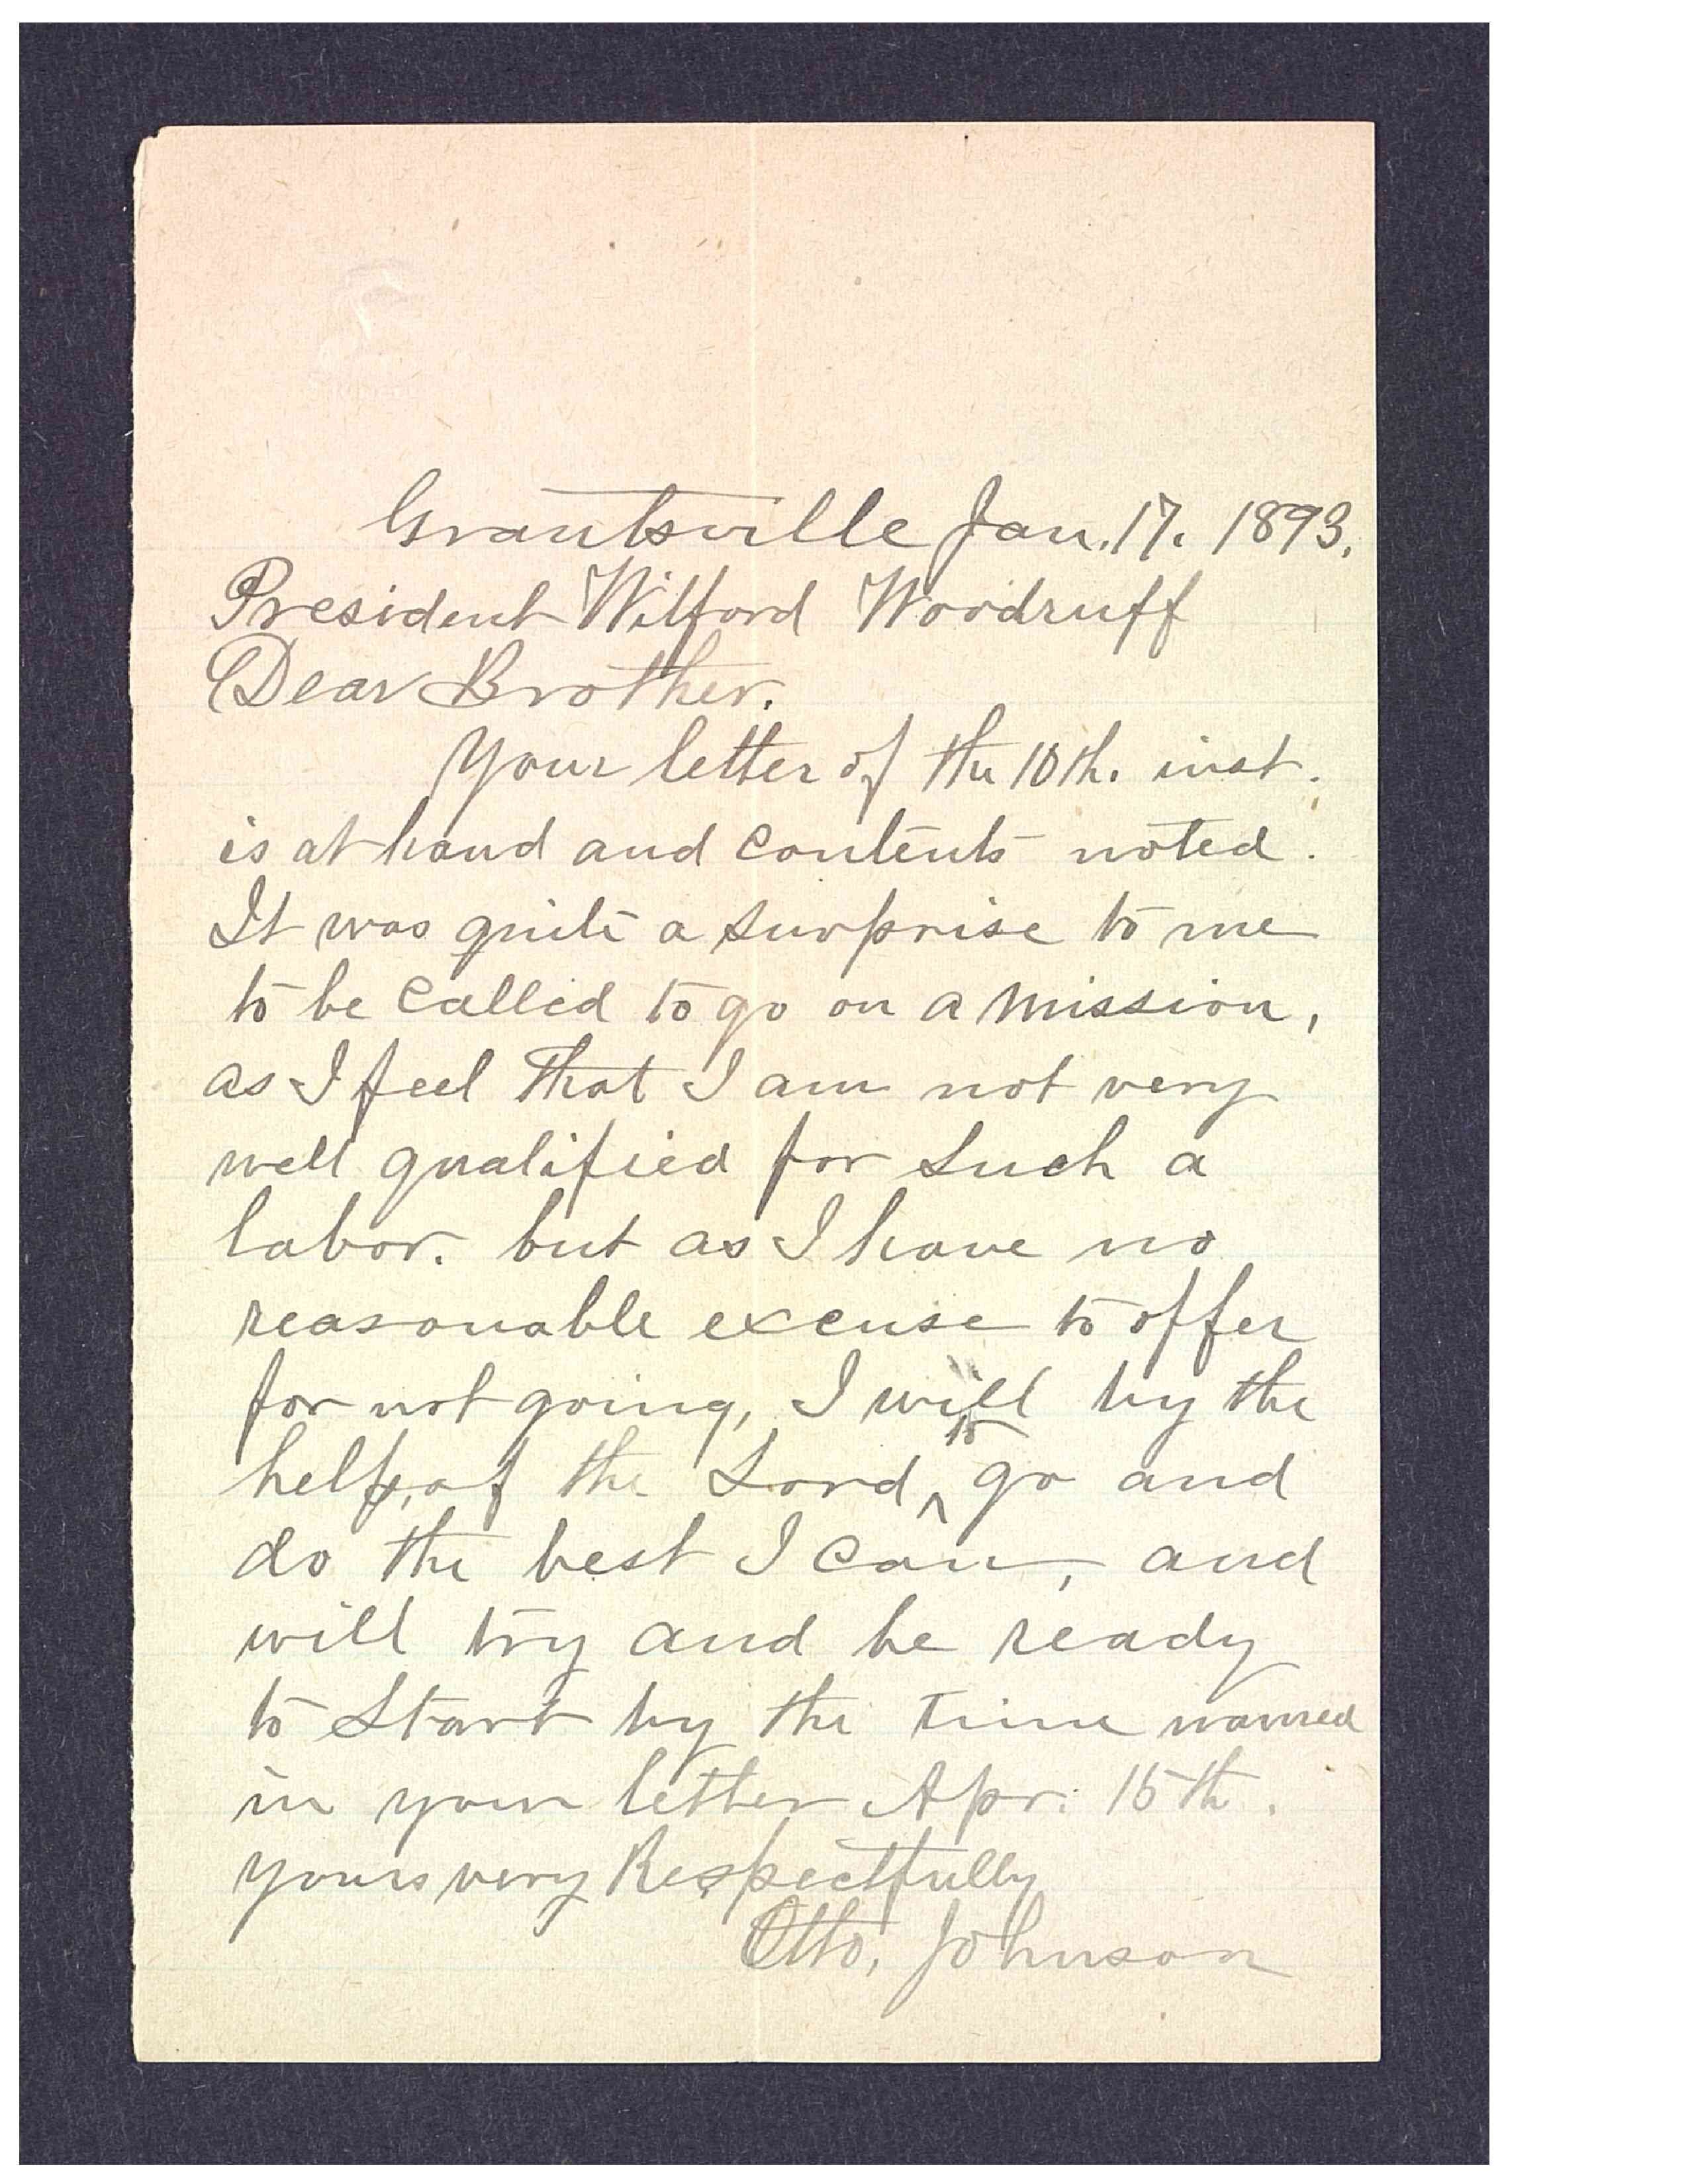 Grantsville Jan. 17. 1893.
President Wilford Woodruff
Dear Brother.
Your letter of the 10th. inst.
is at hand and contents noted.
It was quite a surprise to me
to be called to go on a mission,
as I feel that I am not very
well qualified for such a
labor. but as I have no
reasonable excuse to offer
for not going, I will by the
help, of the Lord, ^to go and
do the best I can, and
will try and be ready
to start by the time named
in your letter Apr. 15th.
yours very Respectfully
Otto, Johnson